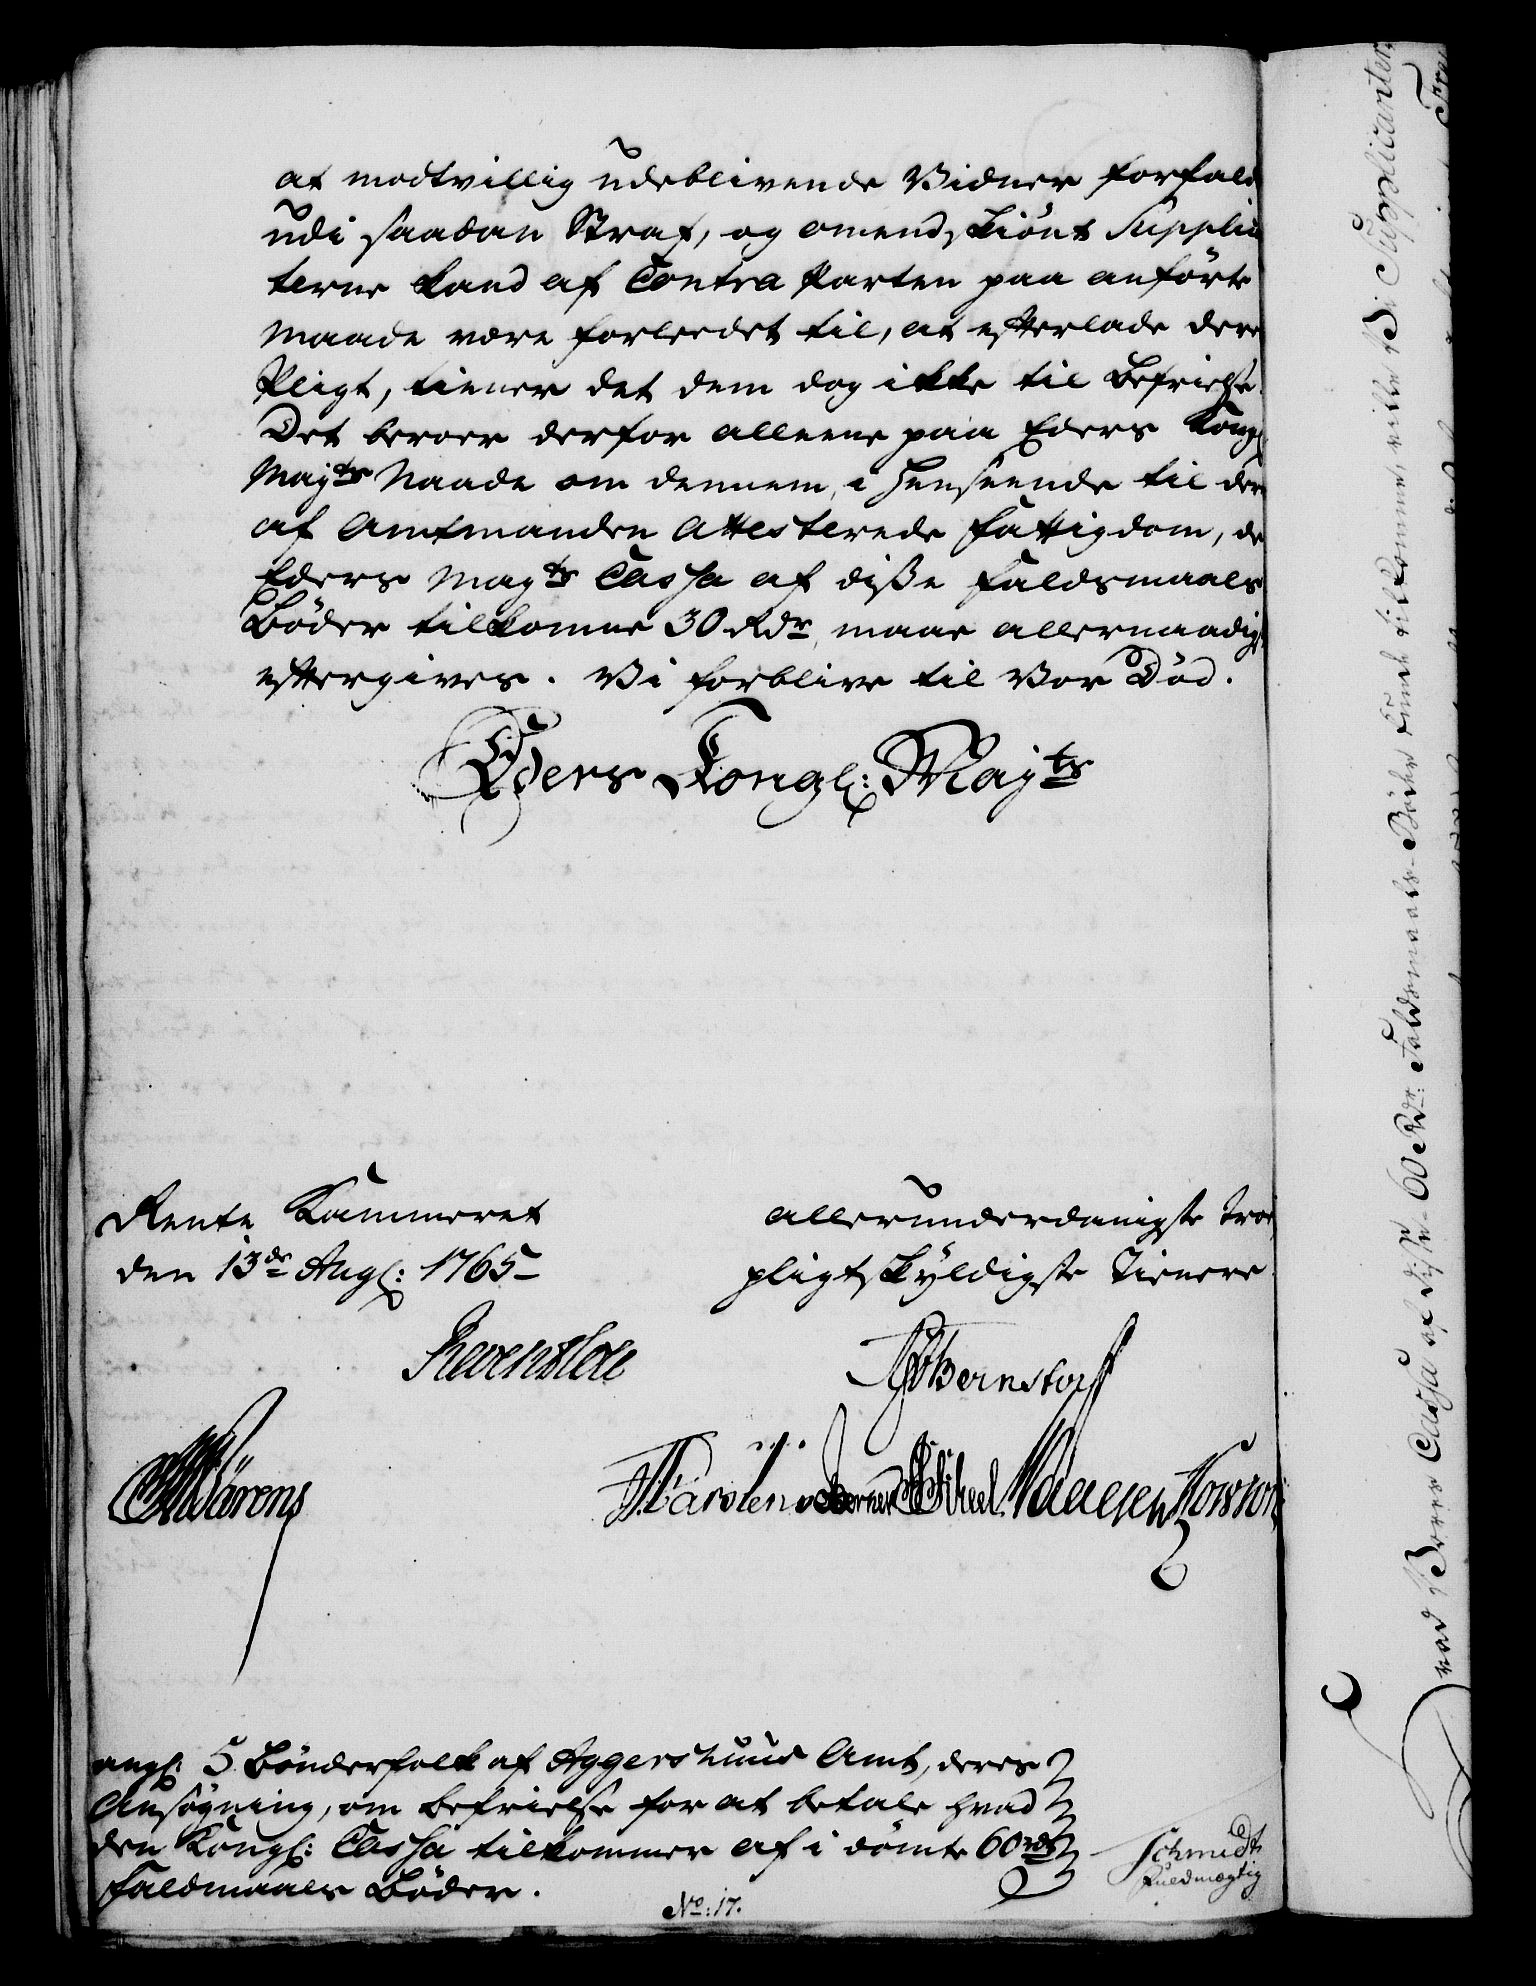 at modtvillig udeblivende Vidner forfald
udi saadan Straf, og omendskiönt Supplic
terne kand af Contra Parten paa anförte
Maade være forleedet til, at efterlade dere
Pligt, tiener det dem dog ikke til Befrielse.
Det beroer derfor alleene paa Eders Kongl
Mayts Naade om dennem, i Henseende til der
af Amtmanden Attesterede Fattigdom, de
Eders Mayts Cassa af diße Faldsmaals
Böder tilkomne 30 Rdr, maae allernaadigst
eftergives. Vi forblive til Vor Död.
Eders Kongl: Mayts
Rente Kammeret
den 13de Augl: 1765
allerunderdanigste troe
pligtskyldigste Tienere
Reventlou
Bernstorff
Wärens
Karstens Berner Scheel
angl: 5 Bönderfolk af Aggershuus Amt, deres
Ansögning, om befrielse for at betale hvad
den Kongl: Cassa tilkommer af idömte 60 rdr
Faldmaals Böder.
Schmidt
Fuldmægtig
No: 17.
hvad Deres Cassa af diße 60 Rdr: Faldsmaals-Böder kunde tilkomme, eller Vi Supplicanter